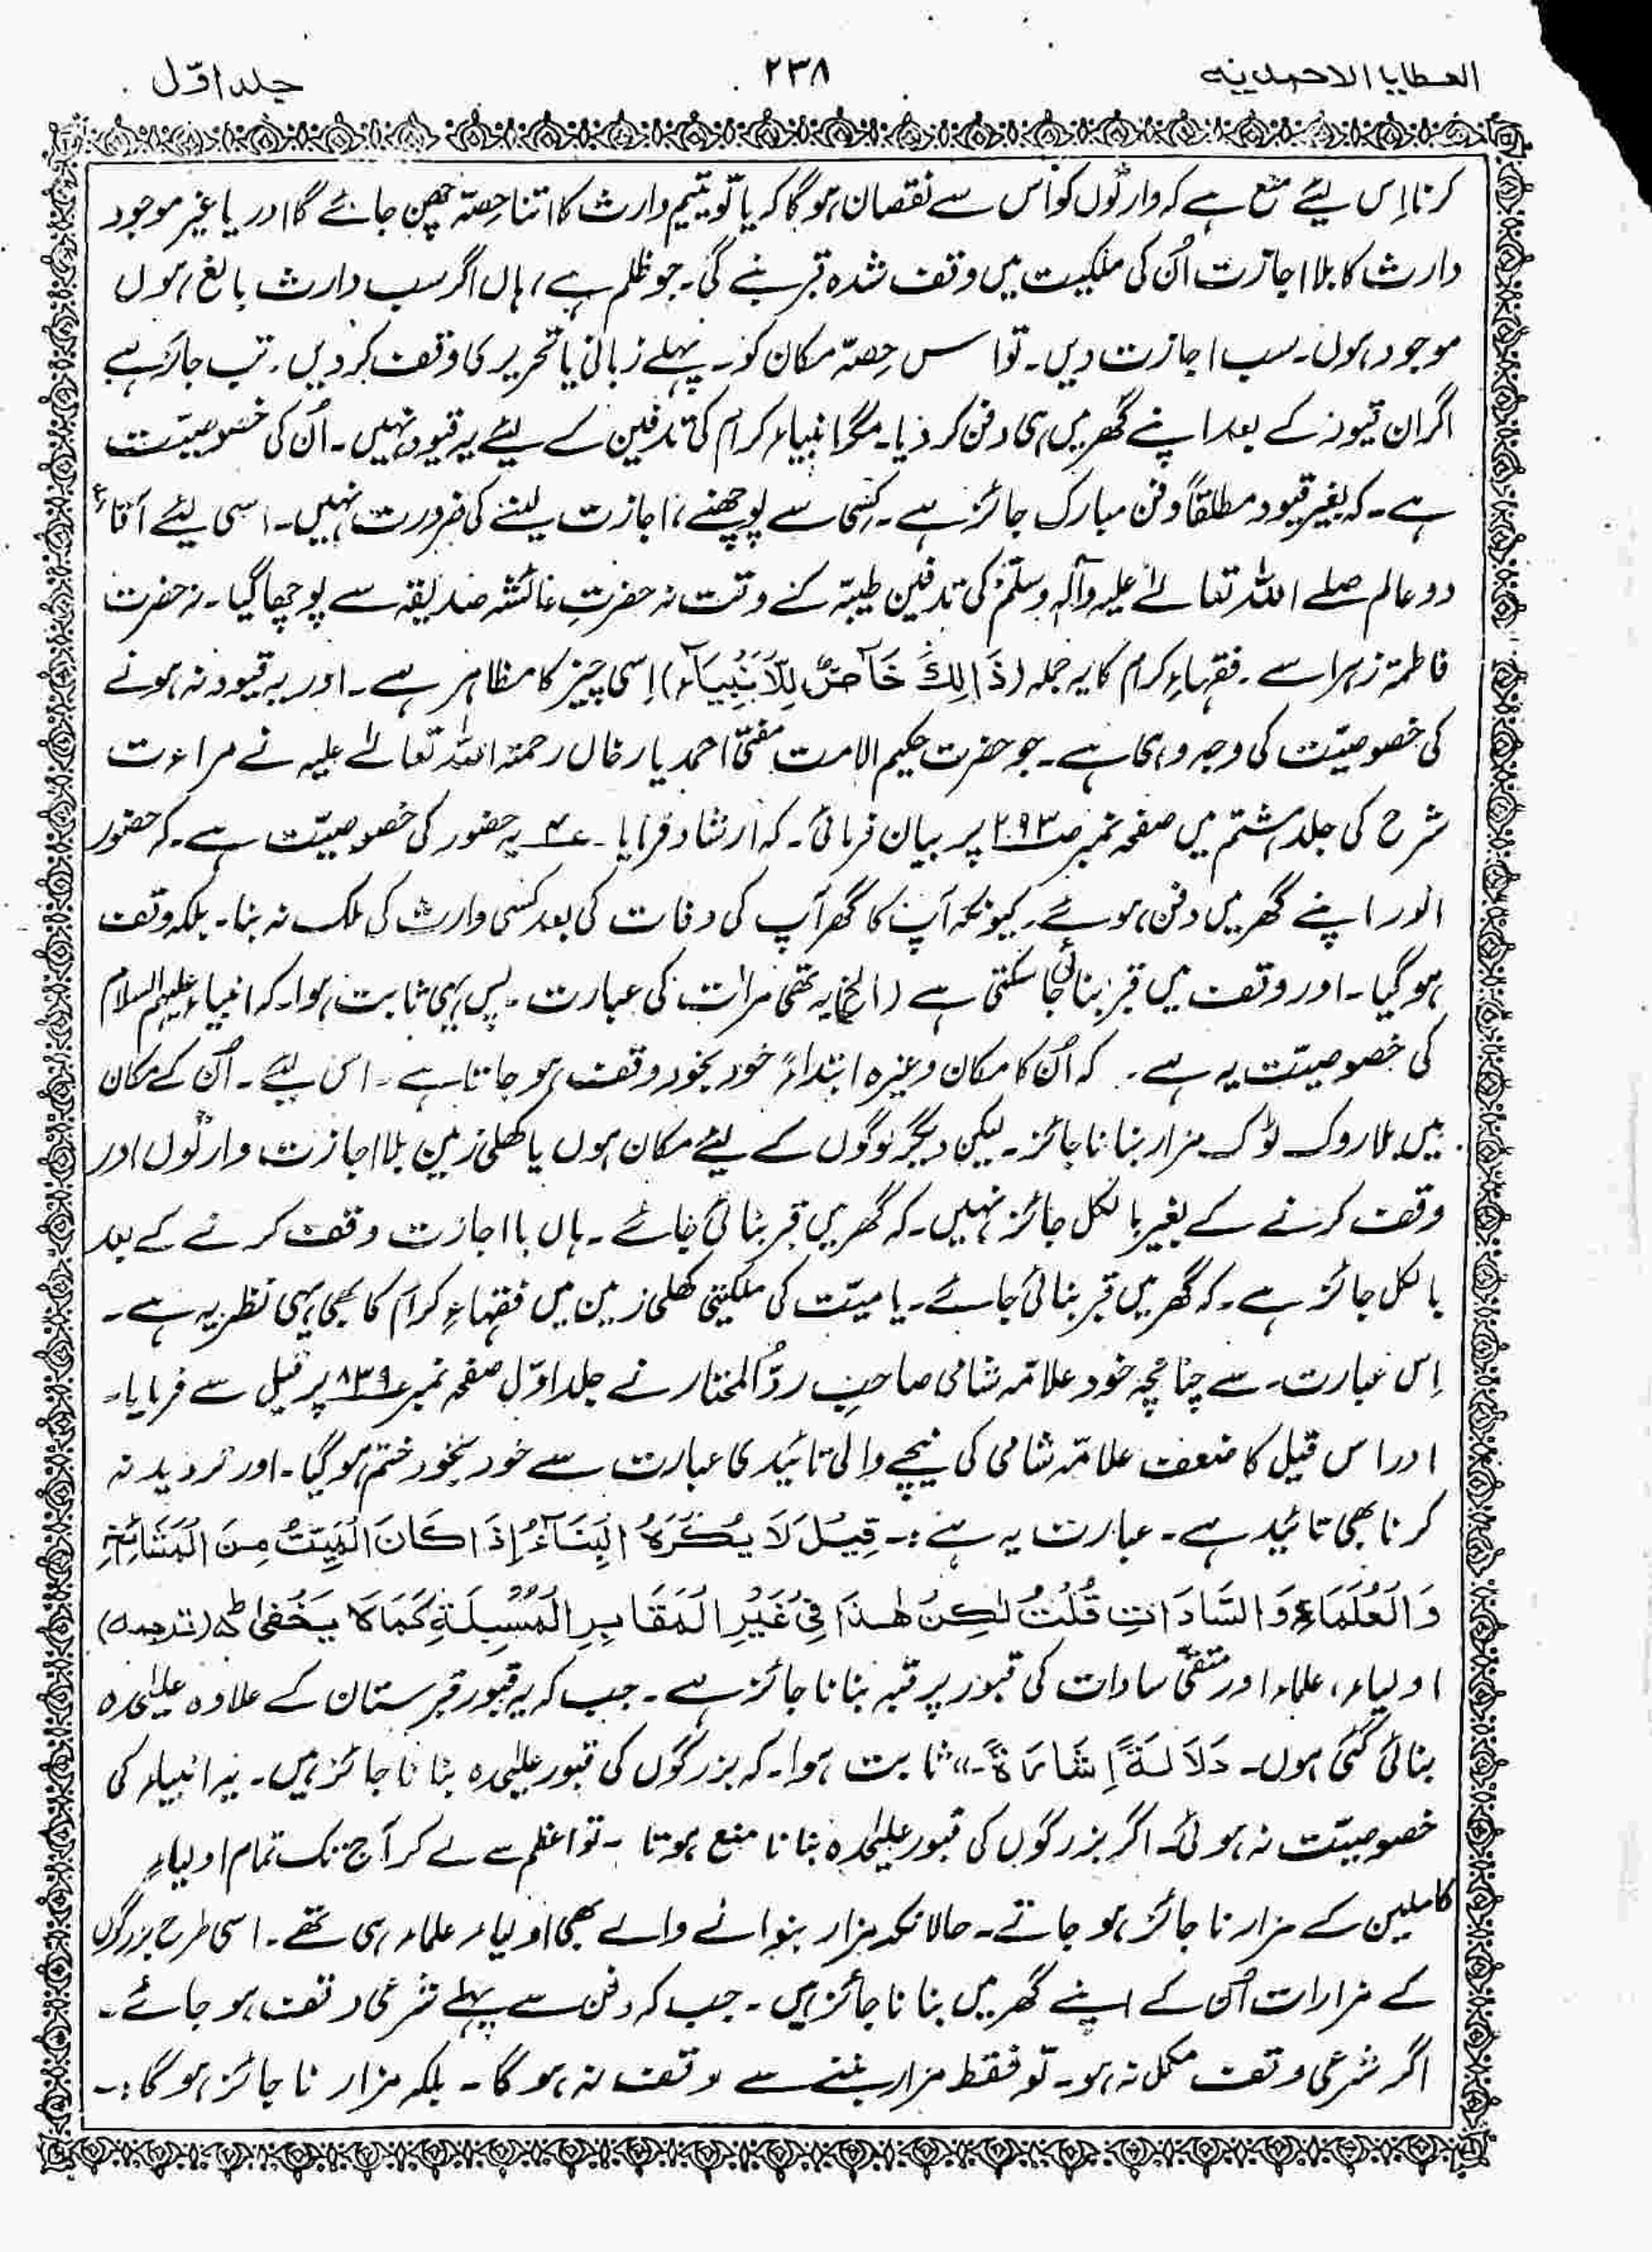 العطایا الاحمدیه ۲۳۸ جلد اوّل
کرنا اِس لیئے منع ہے کہ وارثوں کو اُس سے نقصان ہوگا کہ یا تو یتیم وارث کا اتنا حِصّہ چھن جائے گا اور یا غیر موجود
وارث کا بلا اجازت اُن کی ملکیت میں وقف شدہ قبر بنے گی۔ جو ظلم ہے، ہاں اگر سب وارث بالغ ہوں
موجود ہوں۔ سب اجازت دیں۔ تو اس حِصّہ مکان کو۔ پہلے زبانی یا تحریری وقف کر دیں۔ تب جائز ہے
اگر ان قیود کے بعد اپنے گھر میں ہی دفن کر دیا۔ مگر انبیاء کرام کی تدفین کے لیئے یہ قیود نہیں۔ اُن کی خصوصیّت
ہے۔ کہ بغیر قیود مطلقاً دفن مبارک جائز ہے۔ کسی سے پوچھنے، اجازت لینے کی ضرورت نہیں۔ اسی لیئے آقاءِ
دو عالم صلے اللہ تعالےٰ علیہ وآلہٖ وسلّم کی تدفین طیبّہ کے وقت نہ حضرتِ عائشہ صدیقہ سے پوچھا گیا۔ نہ حضرت
فاطمۃ زہرا سے۔ فقہاءِ کرام کا یہ جملہ (ذَالِكَ خَآصٌّ لِلْاَنْبِيَآءِ) اِسی چیز کا مظاہر ہے۔ اور یہ قیود نہ ہونے
کی خصوصیّت کی وجہ وہی ہے۔ جو حضرت حکیم الامت مفتی احمد یار خاں رحمۃ اللہ تعالےٰ علیہ نے مراءت
شرح کی جلد ہشتم میں صفحہ نمبر صـ۲۹۳ پر بیان فرمائی۔ کہ ارشاد فرمایا۔ ع۴ یہ حضور کی خصوصیّت ہے۔ کہ حضور
انور اپنے گھر میں دفن ہوئے۔ کیونکہ آپ کا گھر آپ کی وفات کی بعد کسی وارث کی ملک نہ بنا۔ بلکہ وقف
ہو گیا۔ اور وقف میں قبر بنائی جا سکتی ہے (الخ) یہ تھی مرات کی عبارت۔ پس یہی ثابت ہوا۔ کہ انبیاء علیہم السلام
کی خصوصیّت یہ ہے۔ کہ اُن کا مکان وغیرہ ابتداءً خود بخود وقف ہو جاتا ہے۔ اس لیے۔ اُن کے مکان
میں بلا روک ٹوک مزار بنانا جائز۔ لیکن دیگر لوگوں کے لیئے مکان ہوں یا کھلی زمین بلا اجازت وارثوں اور
وقف کرنے کے بغیر بالکل جائز نہیں۔ کہ گھر میں قبر بنائی جائے۔ ہاں با اجازت وقف کرنے کے بعد
بالکل جائز ہے۔ کہ گھر میں قبر بنائی جائے۔ یا میّت کی ملکیتی کھلی زمین میں فقہاءِ کرام کا بھی یہی نظریہ ہے۔
اِس عبارت۔ سے چنانچہ خود علامّہ شامی صاحبِ ردُّالمختار نے جلد اوّل صفحہ نمبر ۸۳۹ پر قیل سے فرمایا۔
اور اس قیل کا ضعف علامّہ شامی کی نیچے والی تائیدی عبارت سے خود بخود ختم ہو گیا۔ اور تردید نہ
کرنا بھی تائید ہے۔ عبارت یہ ہے:۔ قِيْلَ لَا يُكْرَهُ الْبِنَآءُ إِذَا كَانَ الْمَيِّتُ مِنَ الْمَشَائِخِ
وَالْعُلَمَاءِ وَالسَّادَاتِ قُلْتُ لٰكِنْ هٰذَا فِيْ غَيْرِ الْمَقَابِرِ الْمُسْبِلَةِ كَمَا لَا يَخْفٰى (ترجمہ)
اولیاء، علماء اور متقیّ سادات کی قبور پر قبہ بنانا جائز ہے۔ جب کہ یہ قبور قبرستان کے علاوہ علیٰحدہ
بنائی گئی ہوں۔ دَلَالَةً اِشَارَةً۔" ثابت ہوا۔ کہ بزرگوں کی قبور علیٰحدہ بنانا جائز ہیں۔ یہ انبیاء کی
خصوصیّت نہ ہوئی۔ اگر بزرگوں کی قبور علیٰحدہ بنانا منع ہوتا۔ تو اعظم سے لے کر آج تک تمام اولیاءِ
کاملین کے مزار نا جائز ہو جاتے۔ حالانکہ مزار بنوانے والے بھی اولیاء علماء ہی تھے۔ اسی طرح بزرگوں
کے مزارات اُن کے اپنے گھر میں بنانا جائز ہیں۔ جب کہ دفن سے پہلے شرعی وقف ہو جائے۔
اگر شرعی وقف مکمل نہ ہو۔ تو فقط مزار بننے سے وقف نہ ہوگا۔ بلکہ مزار نا جائز ہوگا:۔